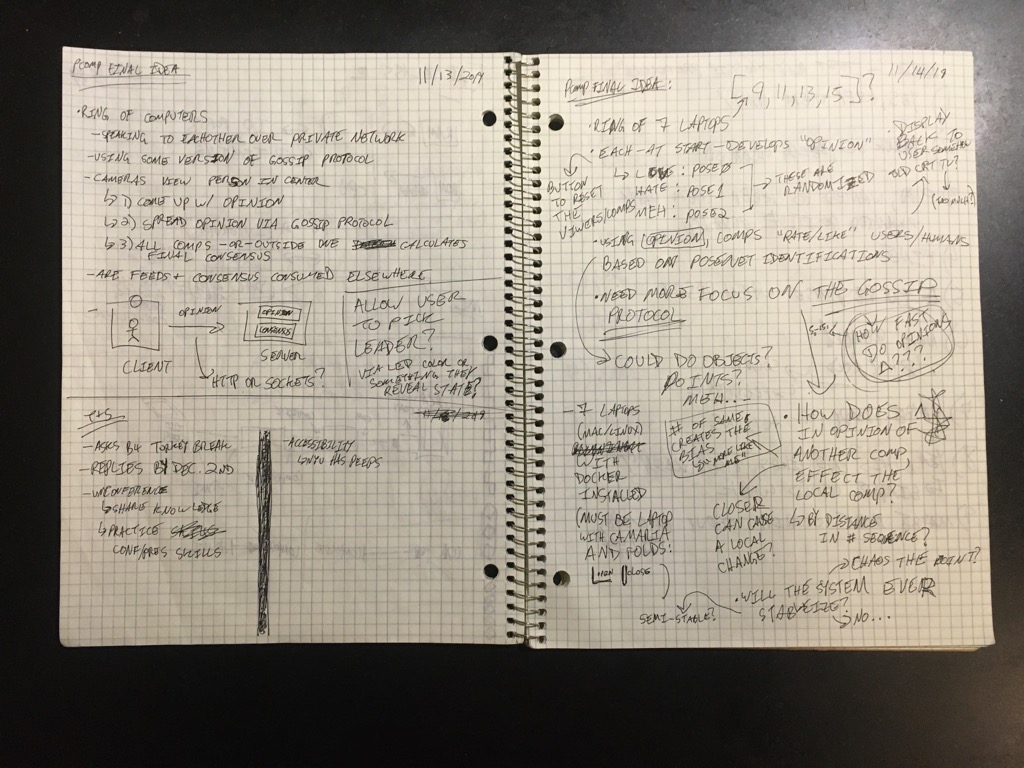 PCOMP FINAL IDEA
11/13/2019
• RING OF COMPUTERS
- SPEAKING TO EACHOTHER OVER PRIVATE NETWORK
- USING SOME VERSION OF GOSSIP PROTOCOL
- CAMERAS VIEW PERSON IN CENTER
↳ 1) COME UP W/ OPINION
↳ 2) SPREAD OPINION VIA GOSSIP PROTOCOL
↳ 3) ALL COMPS - OR - OUTSIDE ONE CALCULATES
FINAL CONSENSUS
- ARE FEEDS + CONSENSUS CONSUMED ELSEWHERE
OPINION
OPINION
CONSENSUS
CLIENT
SERVER
↳ HTTP OR SOCKETS?
ALLOW USER
TO PICK
LEADER?
VIA LED COLOR OR
SOMETHING THEY
REVEAL STATE?
- ASKS B4 TURKEY BREAK
- REPLIES BY DEC. 2ND
- UNCONFERENCE
↳ SHARE KNOWLEDGE
↳ PRACTICE
CONF/PRES SKILLS
- ACCESSIBILITY
↳ NYU HAS PEEPS
PCOMP FINAL IDEA:
11/14/19
[9, 11, 13, 15]?
• RING OF 7 LAPTOPS
• EACH - AT START - DEVELOPS "OPINION"
↳ LOVE: POSE0
HATE: POSE1
MEH: POSE2
→ THESE ARE
RANDOMIZED
BUTTON
TO RESET
THE
VIEWERS/COMPS
• DISPLAY
BACK TO
USER SOMEHOW
OLD CRT TV?
(TOO MUCH?)
• USING OPINION, COMPS "RATE/LIKE" USERS/HUMANS
BASED ON POSENET IDENTIFICATIONS
• NEED MORE FOCUS ON THE GOSSIP
PROTOCOL
HOW FAST
DO OPINIONS
Δ???
COULD DO OBJECTS?
POINTS?
MEH...
- 7 LAPTOPS
(MAC/LINUX)
WITH
DOCKER
INSTALLED
(MUST BE LAPTOP
WITH CAMARIA
AND FOLDS:
OPEN CLOSE
# OF SAME
CREATES THE
BIAS
"OH MORE LIKE
ME"
CLOSER
CAN CAUSE
A LOCAL
CHANGE?
• HOW DOES A
IN OPINION OF
ANOTHER COMP,
EFFECT THE
LOCAL COMP?
↳ BY DISTANCE
IN # SEQUENCE?
→ CHAOS THE POINT?
• WILL THE SYSTEM EVER
STABILIZE?
↳ NO...
SEMI-STABLE?